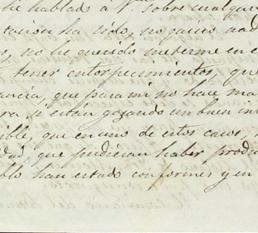 he hablado á V. sobre cualquier
tacion ha sido, no
no he querido meterme en e
tener entorpecimientos, que
ancia, que para mi no hace ma
ra si estan gozando un buen in
ble, que en uno de estos casos,
dad, que pudieran haber produ
blo han estado conformes y en